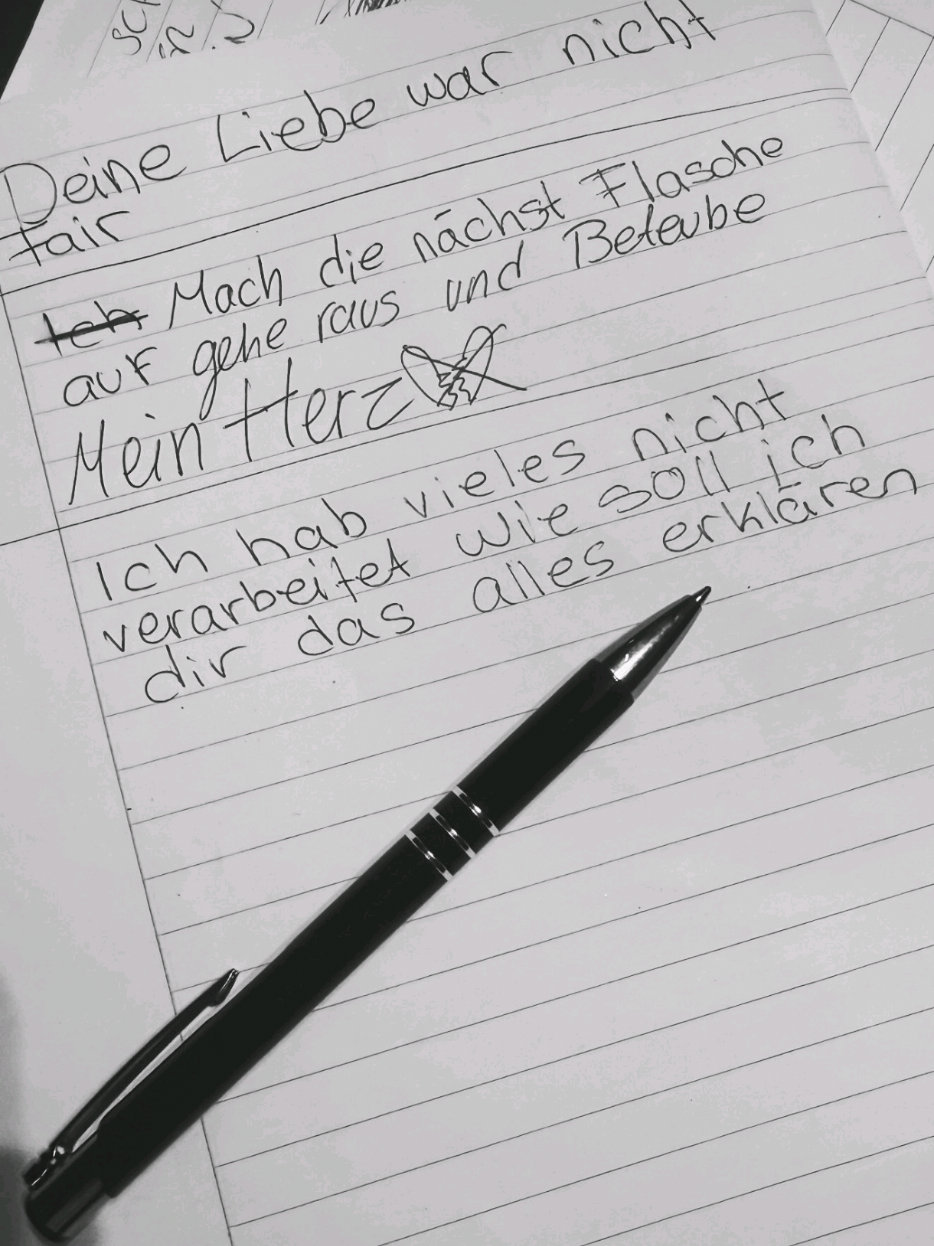 Deine Liebe war nicht
fair
Ich Mach die nächst Flasche
auf gehe raus und Beteube
Mein Herz
Ich hab vieles nicht
verarbeitet wie soll ich
dir das alles erklären